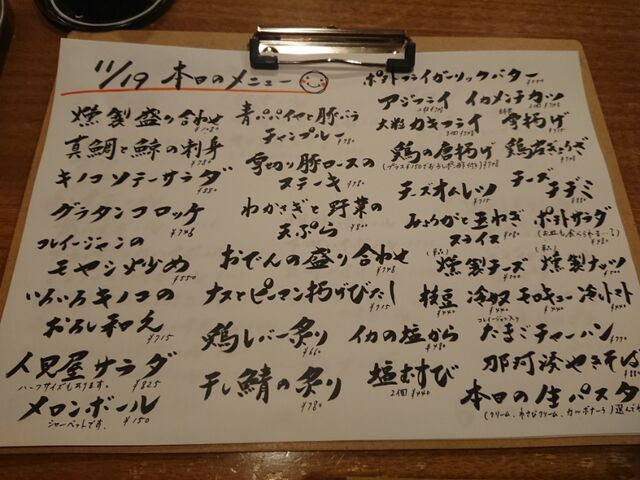 11/19 本日のメニュー
燻製盛り合わせ
真鯛と鯨の刺身
キノコソテーサラダ
グラタンコロッケ
クレイジージャンの
モヤシ炒め ¥550
いろいろキノコの
おろし和え ¥715
人見屋サラダ
ハーフサイズもあります。 ¥825
メロンボール
シャーベットです。 ¥150
青パパイヤと豚バラ
チャンプルー
厚切り豚ロースの
ステーキ
わかさぎと野菜の
天ぷら
おでんの盛り合わせ
ナスとピーマン揚げびたし ¥715
鶏レバー炙り ¥660
干し鯖の炙り ¥780
ポテトフライガーリックバター
アジフライ イカメンチカツ
大粒カキフライ
鶏の唐揚げ
チーズオムレツ ¥715
チーズ
チヂミ
みょうがと玉ねぎ
スライス
ポテトサラダ
燻製チーズ
燻製ナッツ
枝豆 冷奴 モロキュー 冷しトマト
イカの塩から
たまごチャーハン
塩むすび
2個 ¥440
那珂湊やきそば
本日の生パスタ